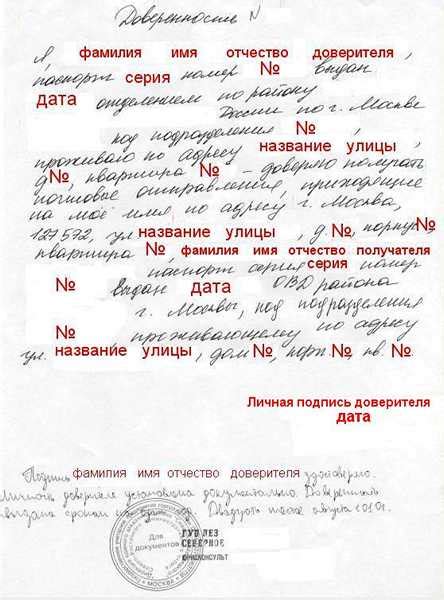 Доверенность N
Я, фамилия имя отчество доверителя,
паспорт серия номер № выдан
дата отделением по району
России по г. Москве
код подразделения №,
проживаю по адресу название улицы,
д№, квартира № - доверяю получать
почтовые отправления, приходящие
на моё имя по адресу г. Москва,
127572, ул название улицы, д. №, корпус №
квартира №, фамилия имя отчество получателя
паспорт серия серия номер
№ выдан дата ОВД района
г. Москвы, код подразделения
№, проживающему по адресу
ул. название улицы, дом №, корп № кв. №.
Личная подпись доверителя
дата
Подпись фамилия имя отчество доверителя удостоверяю.
Личность доверителя установлена документально. Доверенность
выдана сроком на Двадцать августа
Для
документов
МОСКВА
ГУП ДЕЗ
СЕВЕРНОЕ
ЮРИСКОНСУЛЬТ